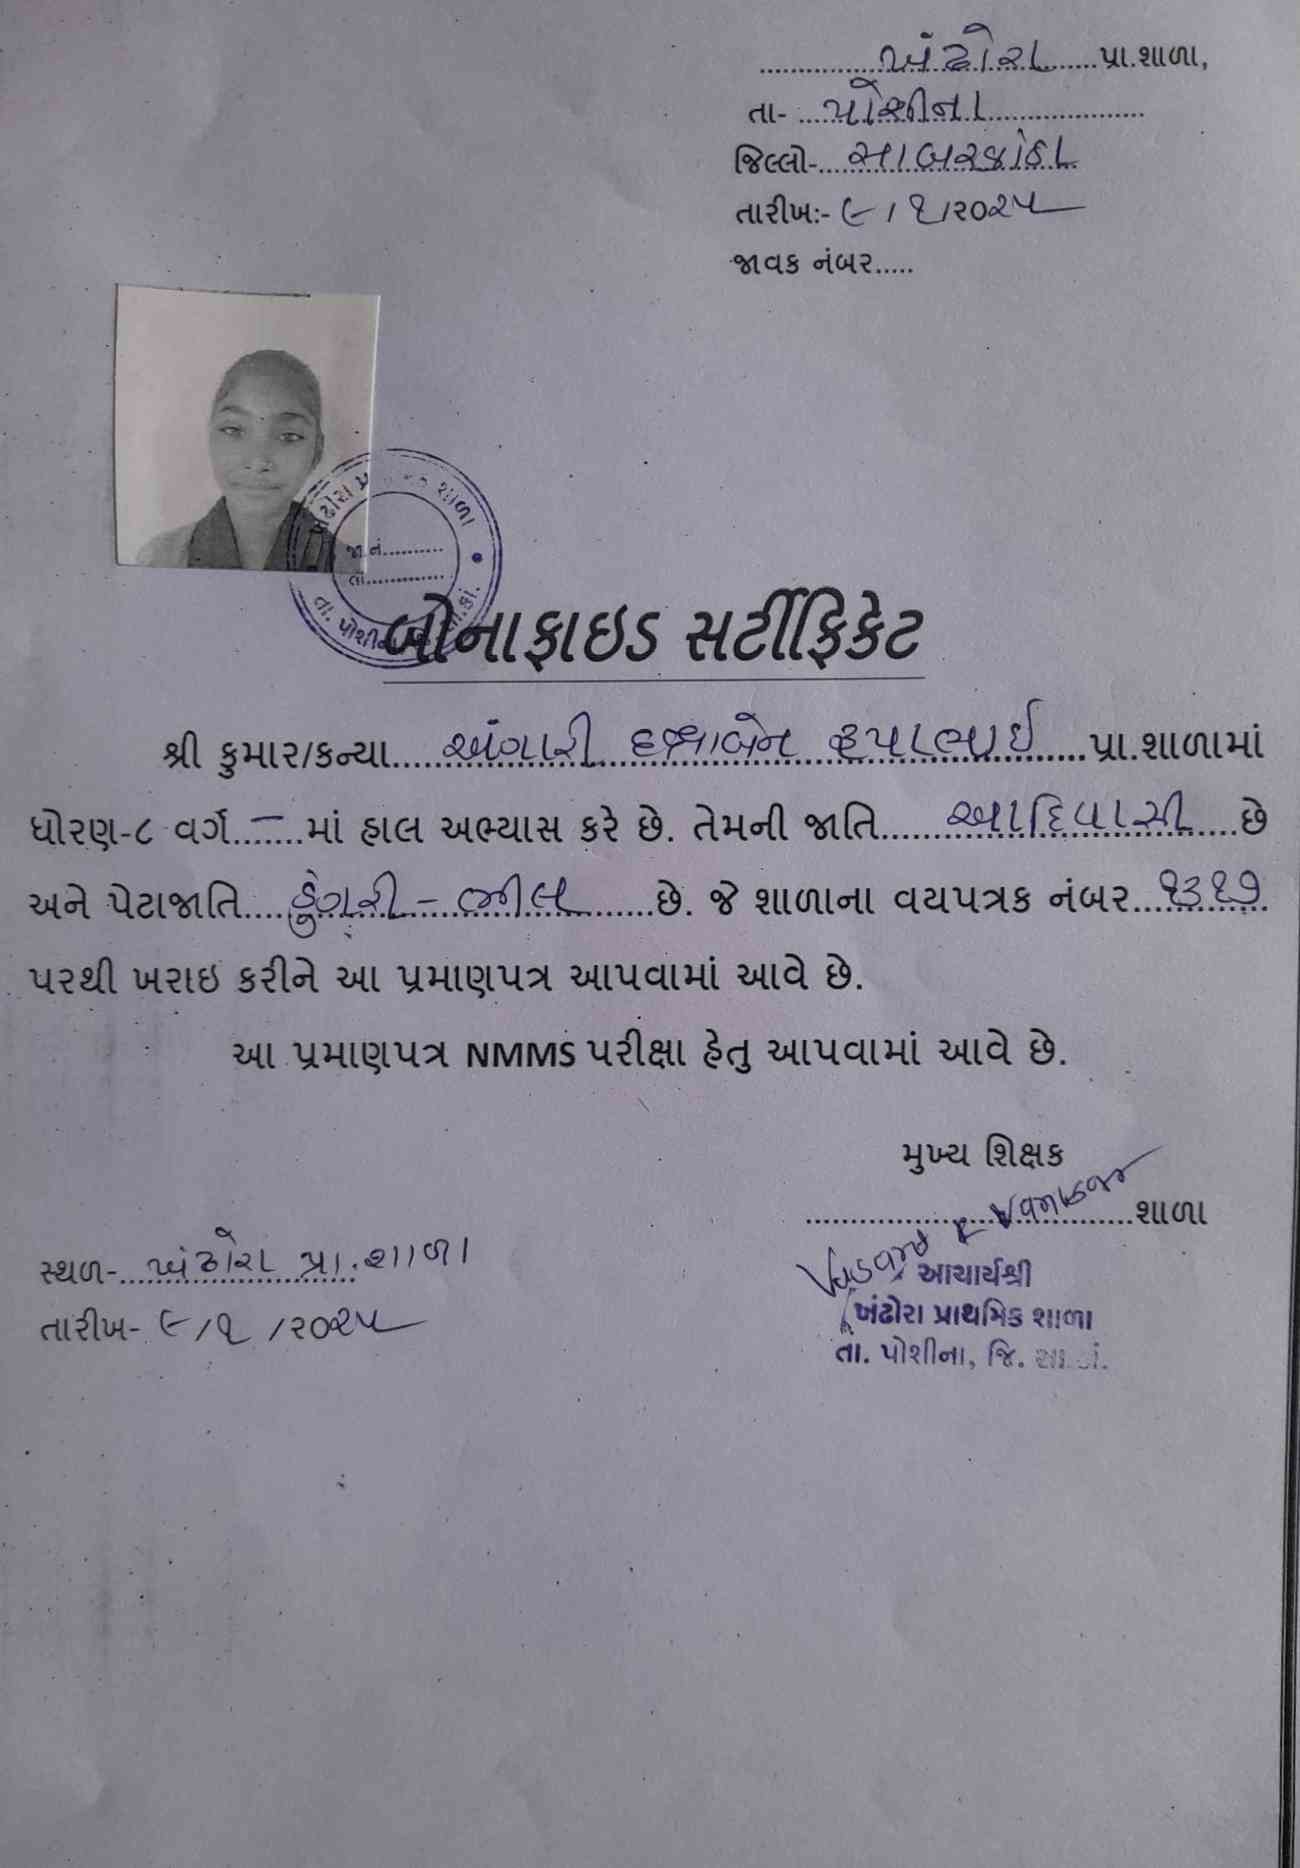 ખંઢોરા પ્રા.શાળા,
તા- પોશીના
જિલ્લો- સાબરકાંઠા
તારીખ:- ૯/૧/૨૦૨૫
જાવક નંબર.....
ખંઢોરા પ્રાથમિક શાળા
જા.નં..........
તા.............
તા. પોશીના સા.કાં.
બોનાફાઇડ સર્ટીફિકેટ
શ્રી કુમાર/કન્યા....અંગારી દક્ષાબેન રૂપાભાઈ....પ્રા.શાળામાં
ધોરણ-૮ વર્ગ..–....માં હાલ અભ્યાસ કરે છે. તેમની જાતિ....આદિવાસી....છે
અને પેટાજાતિ....ડુંગરી - ભીલ....છે. જે શાળાના વયપત્રક નંબર..૧૩૧૭..
પરથી ખરાઇ કરીને આ પ્રમાણપત્ર આપવામાં આવે છે.
આ પ્રમાણપત્ર NMMS પરીક્ષા હેતુ આપવામાં આવે છે.
મુખ્ય શિક્ષક
શાળા
સ્થળ-ખંઢોરા પ્રા.શાળા
તારીખ- ૯/૧/૨૦૨૫
આચાર્યશ્રી
ખંઢોરા પ્રાથમિક શાળા
તા. પોશીના, જિ. સા.કાં.